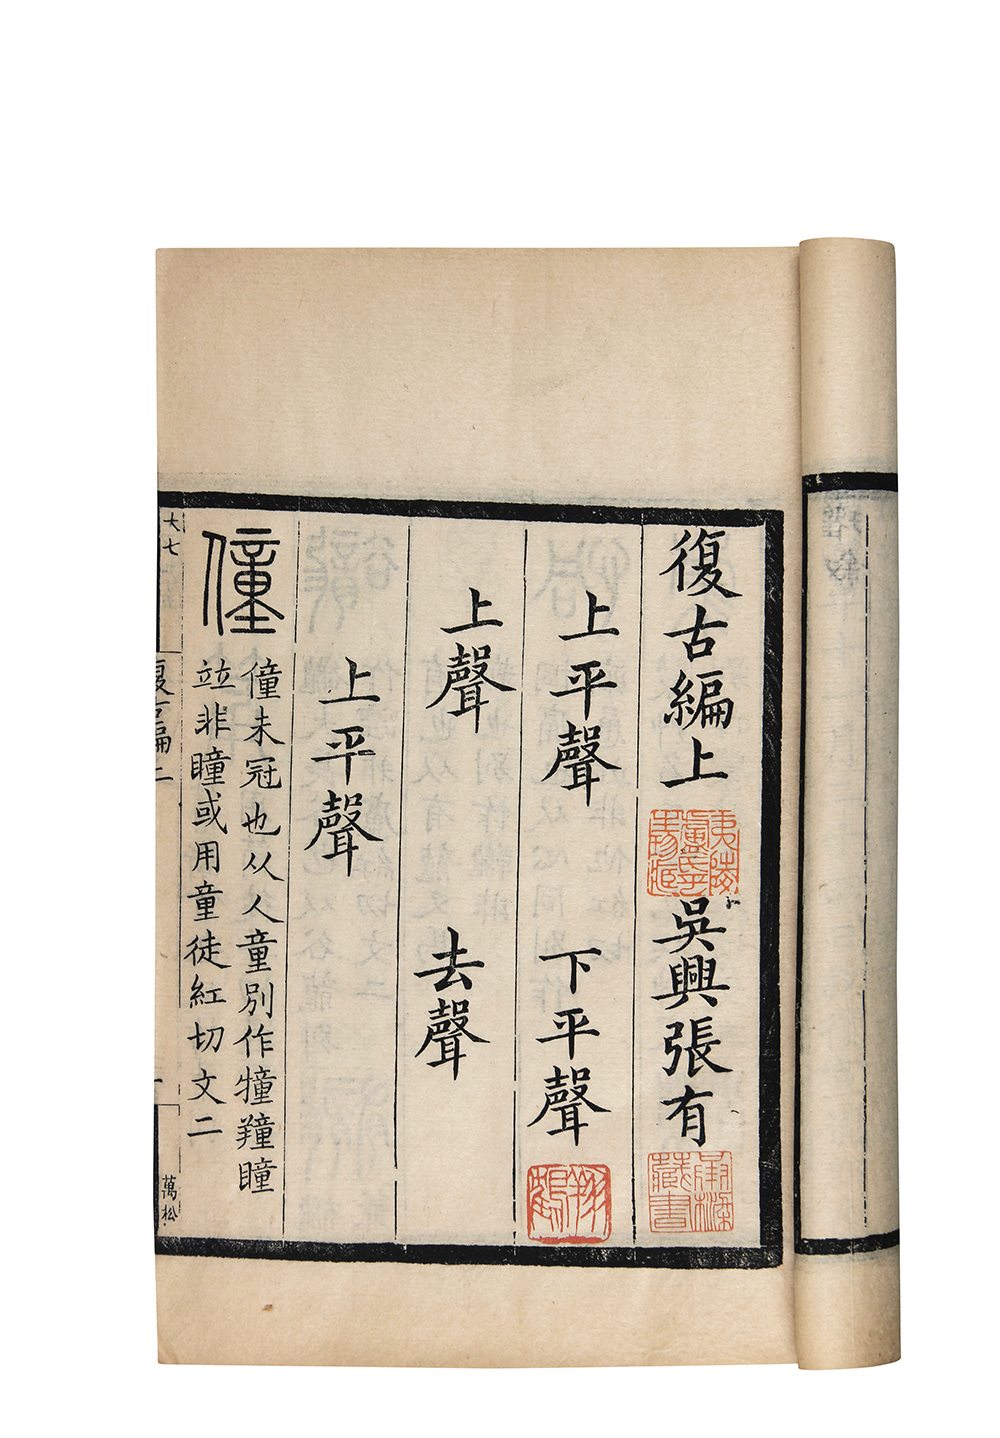 復古編上
吳興張有
上平聲 下平聲
上聲 去聲
上平聲
僮 僮未冠也从人童別作犝羵瞳
竝非瞳或用童徒紅切文二
大七
復古編上
萬松